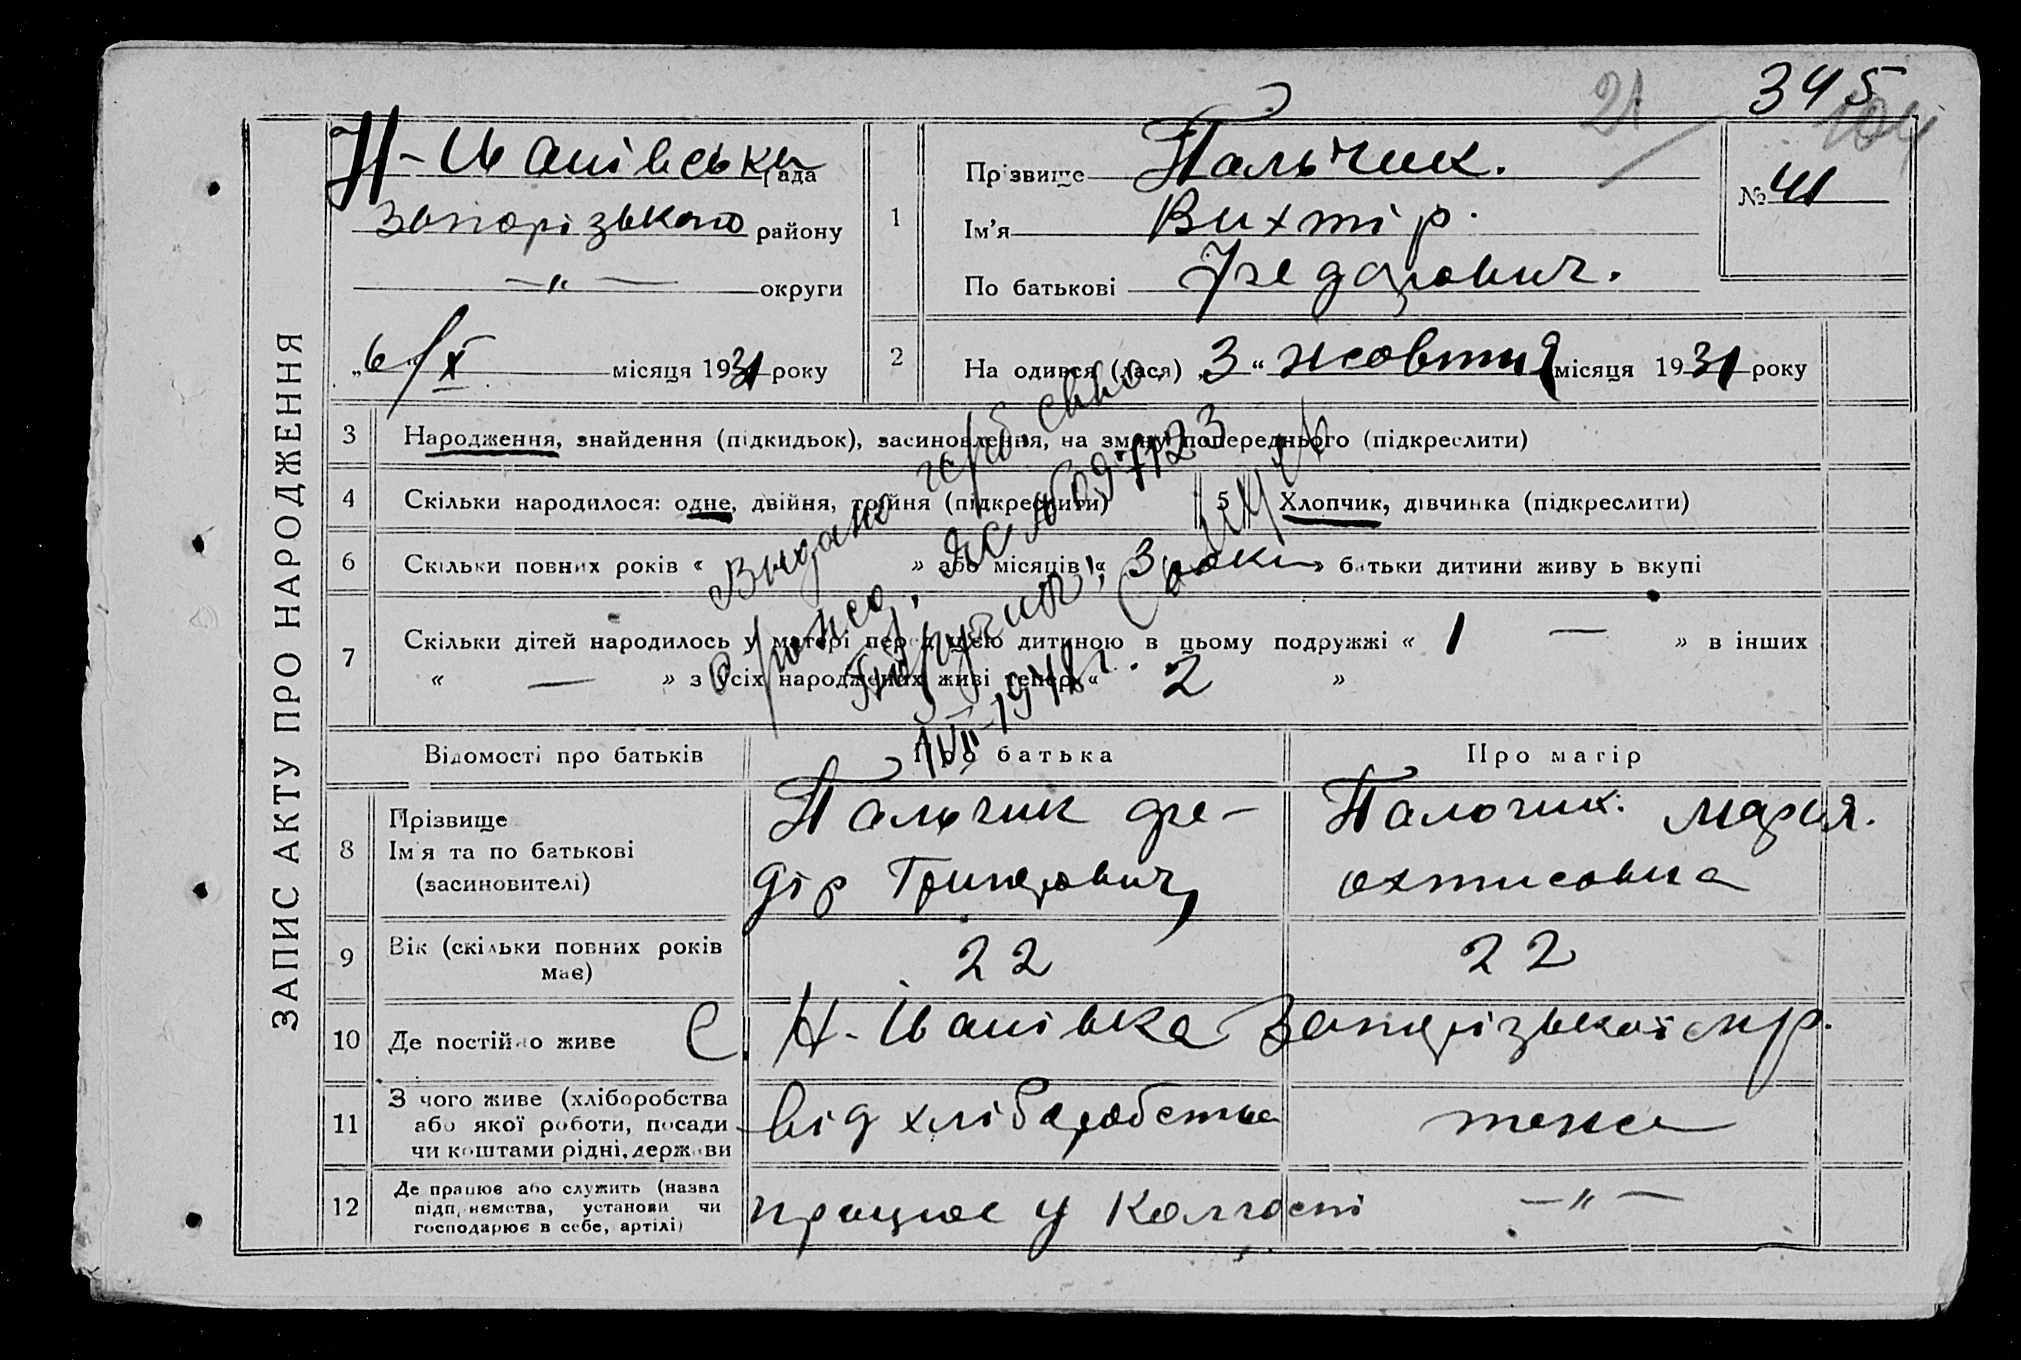 345
21
104
ЗАПИС АКТУ ПРО НАРОДЖЕННЯ
Н-Іванівська рада
Запорізького району
—„— округи
„6/X місяця 1931 року
1
Прізвище Пальчик.
Ім'я Вихтір.
По батькові Федорович.
№ 41
2
Народився (лася) „3“ жовтня місяця 1931 року
3 Народження, знайдення (підкидьок), засиновлення, на зміну попереднього (підкреслити)
4 Скільки народилося: одне, двійня, тройня (підкреслити)
5 Хлопчик, дівчинка (підкреслити)
6 Скільки повних років « » або місяців « 3 роки » батьки дитини живуть вкупі
7 Скільки дітей народилось у матері перед цією дитиною в цьому подружжі « 1 — » в інших
« — » з усіх народжених живі тепер « 2 »
Выдано герб. св-во
о рожд. № 097123
1971 г.
Відомості про батьків
Про батька
Про матір
8 Прізвище
Ім'я та по батькові
(засиновителі)
Пальчик Фе-
дір Григорович,
Пальчик. Мария.
Охтисовна
9 Вік (скільки повних років
має)
22
22
10 Де постійно живе
С. Н-Іванівка Запорізької мр.
11 З чого живе (хліборобства
або якої роботи, посади
чи коштами рідні, держави
від хліборобства
теже
12 Де працює або служить (назва
підприємства, установи чи
господарює в себе, артілі)
працює у колгоспі
—„—